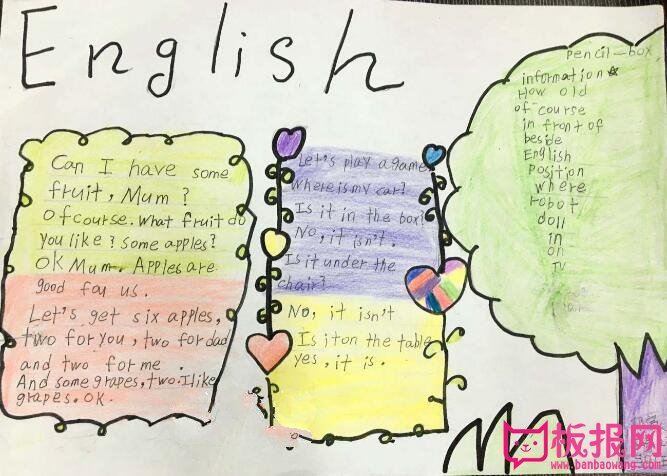 English
Can I have some
fruit, Mum?
Of course. What fruit do
you like? Some apples?
OK Mum. Apples are
good fou us.
Let's get six apples,
two for you, two for dad
and two for me.
And some grapes, two. I like
grapes. OK.
Let's play a game.
Where is my car?
Is it in the box?
No, it isn't.
Is it under the
chair?
No, it isn't
Is it on the table
yes, it is.
pencil-box
information
How old
of course
in front of
beside
English
Position
where
robot
doll
in
on
TV
板报网
www.banbaowang.com